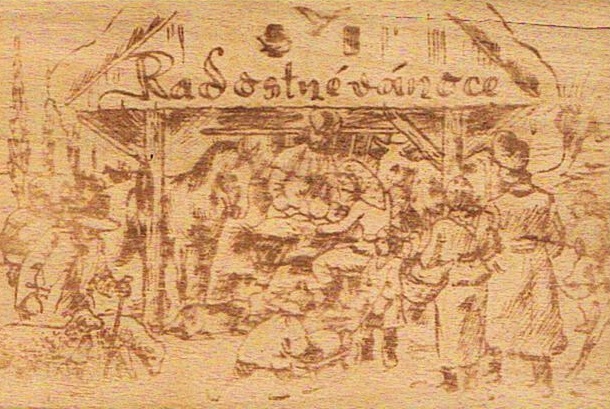 Radostné vánoce